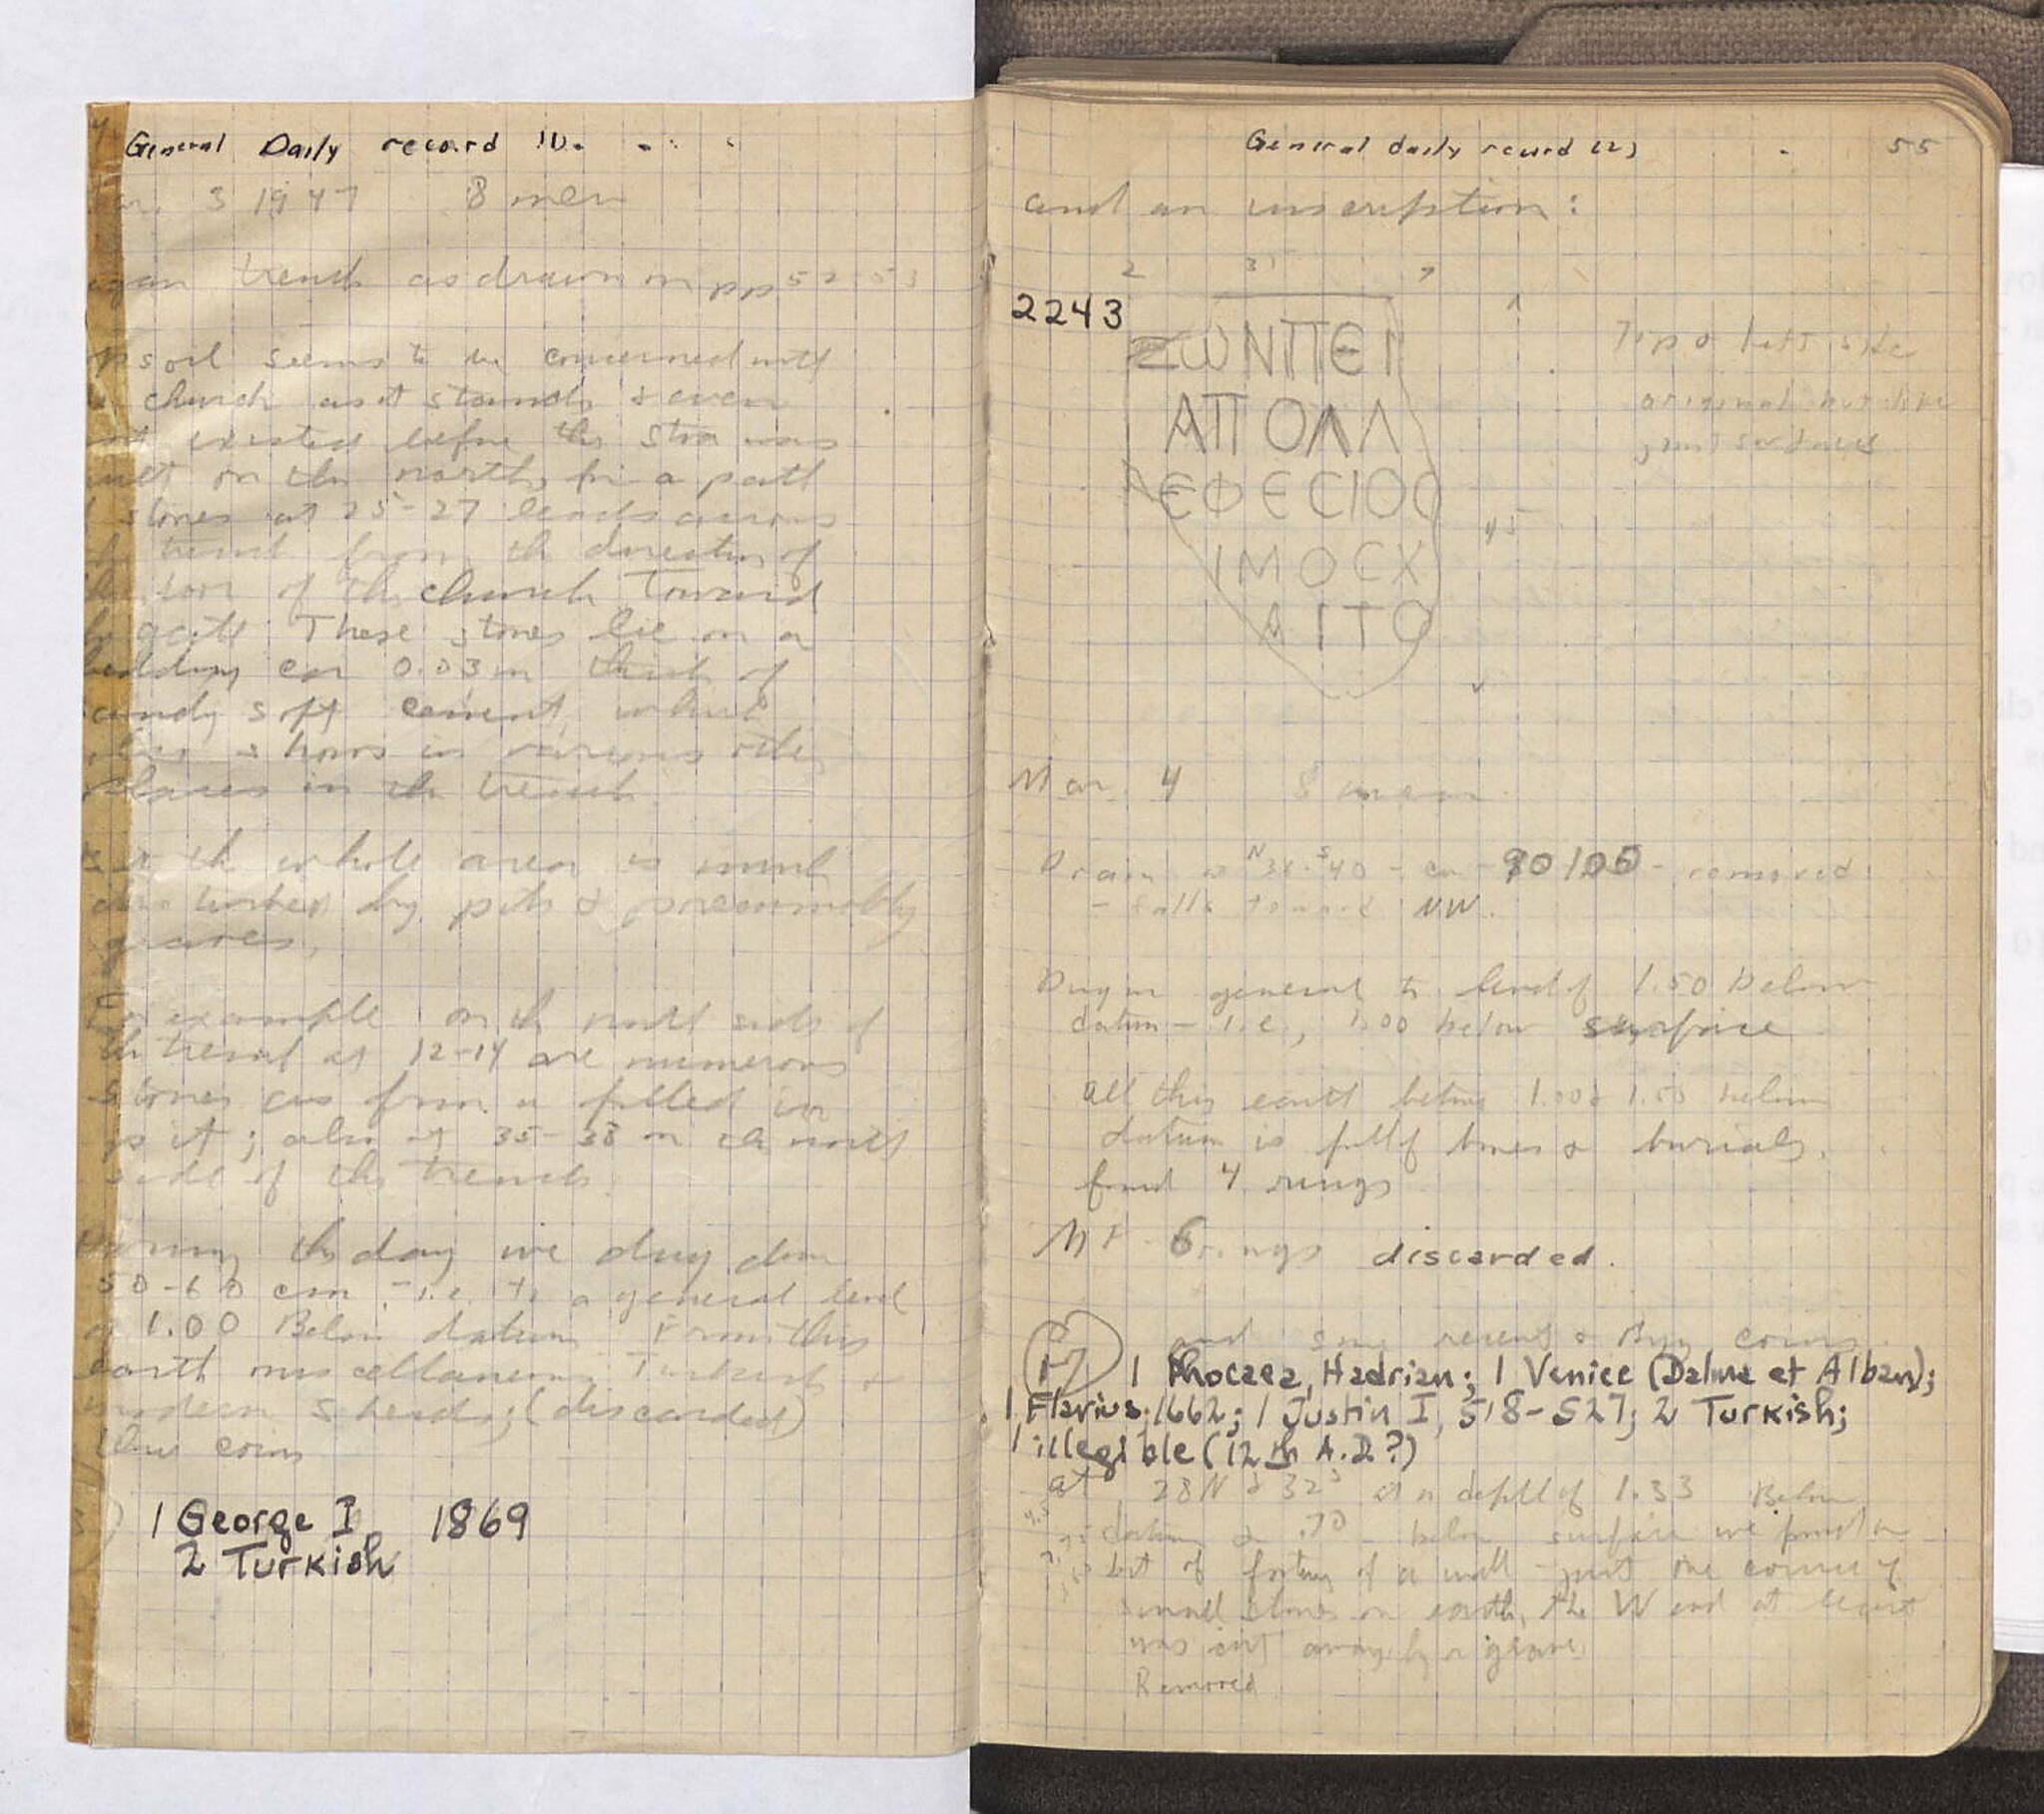 General Daily record (1).
3 1947 8 men
trench as drawn on pp 52-53
soil seems to be concerned with
church as it stands & even
existed before the Stoa was
on the north, for a path
stones at 25-27 leads across
trench from the direction of
door of the church toward
gate. These stones lie on a
bedding ca 0.03 m thick of
sandy soft cement, which
also shows in various other
places in the trench.
the whole area is much
disturbed by pits & presumably
graves.
For example on the north side of
the trench at 12-14 are numerous
stones as from a filled in
pit; also at 35-38 on the north
side of the trench.
During the day we dug down
50-60 cm - i.e. to a general level
of 1.00 Below datum From this
earth miscellaneous Turkish &
modern sherds; (discarded)
coins
1 George I 1869
2 Turkish
General daily record (2) 55
and an inscription:
2243
ΣΩΝΠΕΙ
ΑΠΟΛΛ
ΕΦΕCΙΟC
ΙΜΟCΧ
ΑΙΤΟ
45
Top & left side
original
joint surfaces
Mar. 4 8 men
Drain at N 36 S 40 - ca 90/100 - removed
- falls toward NW.
Dug in general to level of 1.50 below
datum - i.e., 1.00 below surface
All this earth between 1.00 & 1.50 below
datum is full of bones & burials.
found 4 rings
6 rings discarded.
and some recent & Byz coins
1 Phocaea, Hadrian; 1 Venice (Dalma et Alban);
1 Flavius, 1662; 1 Justin I, 518-527; 2 Turkish;
1 illegible (12th A.D.?)
at 28 N & 32 S at a depth of 1.33 Below
datum & .70 below surface we found a
bit of footing of a wall - just one course of
small stones on earth, the W end at least
was cut away by a grave
Removed